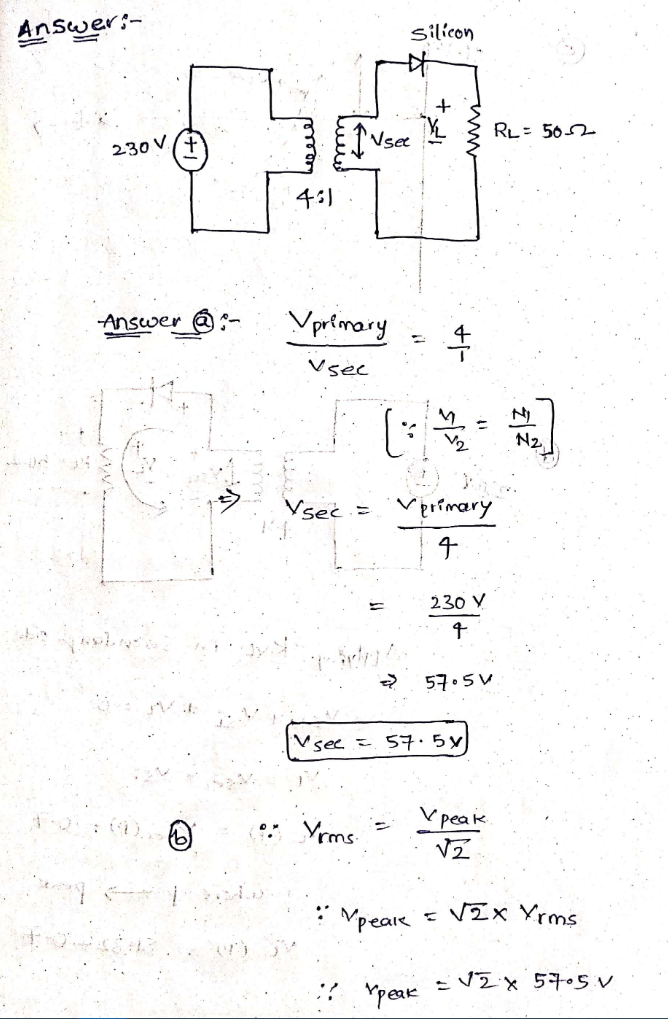 Answer:-
Silicon
230 V
+
-
4:1
Vsec
+
VL
-
RL = 50Ω
Answer ⓐ :-
Vprimary / Vsec = 4/1
[∵ V1/V2 = N1/N2]
⇒ Vsec = Vprimary / 4
= 230 V / 4
⇒ 57.5V
Vsec = 57.5V
ⓑ ∵ Vrms = Vpeak / √2
∵ Vpeak = √2 x Vrms
∵ Vpeak = √2 x 57.5 V